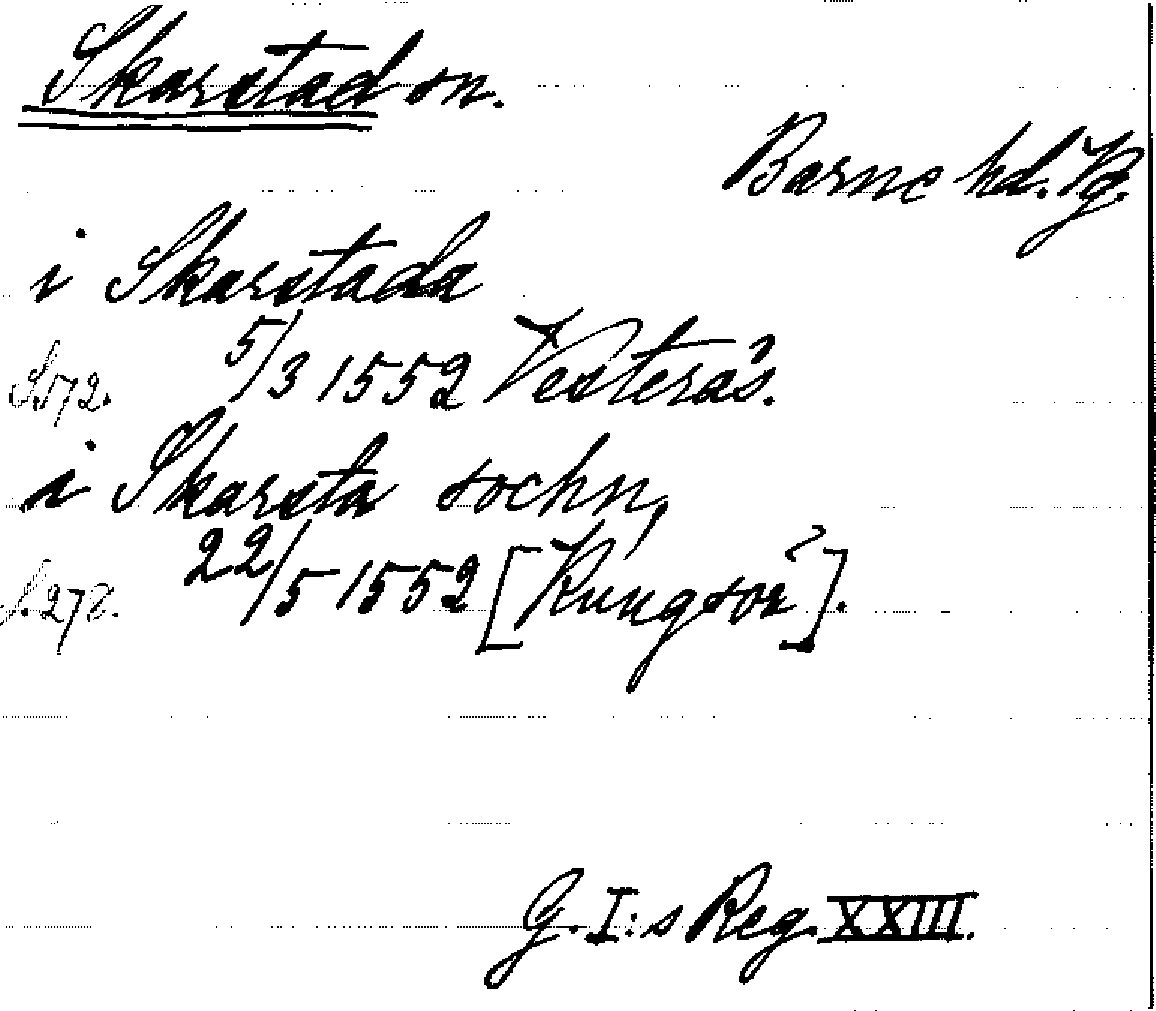 Skarstad sn.
Barne hd. Vg.
i Skarstada
S. 72. 5/3 1552 Vesterås.
i Skarsta sochn,
S. 272. 22/5 1552 [Kungsör].
G. I:s Reg. XXIII.